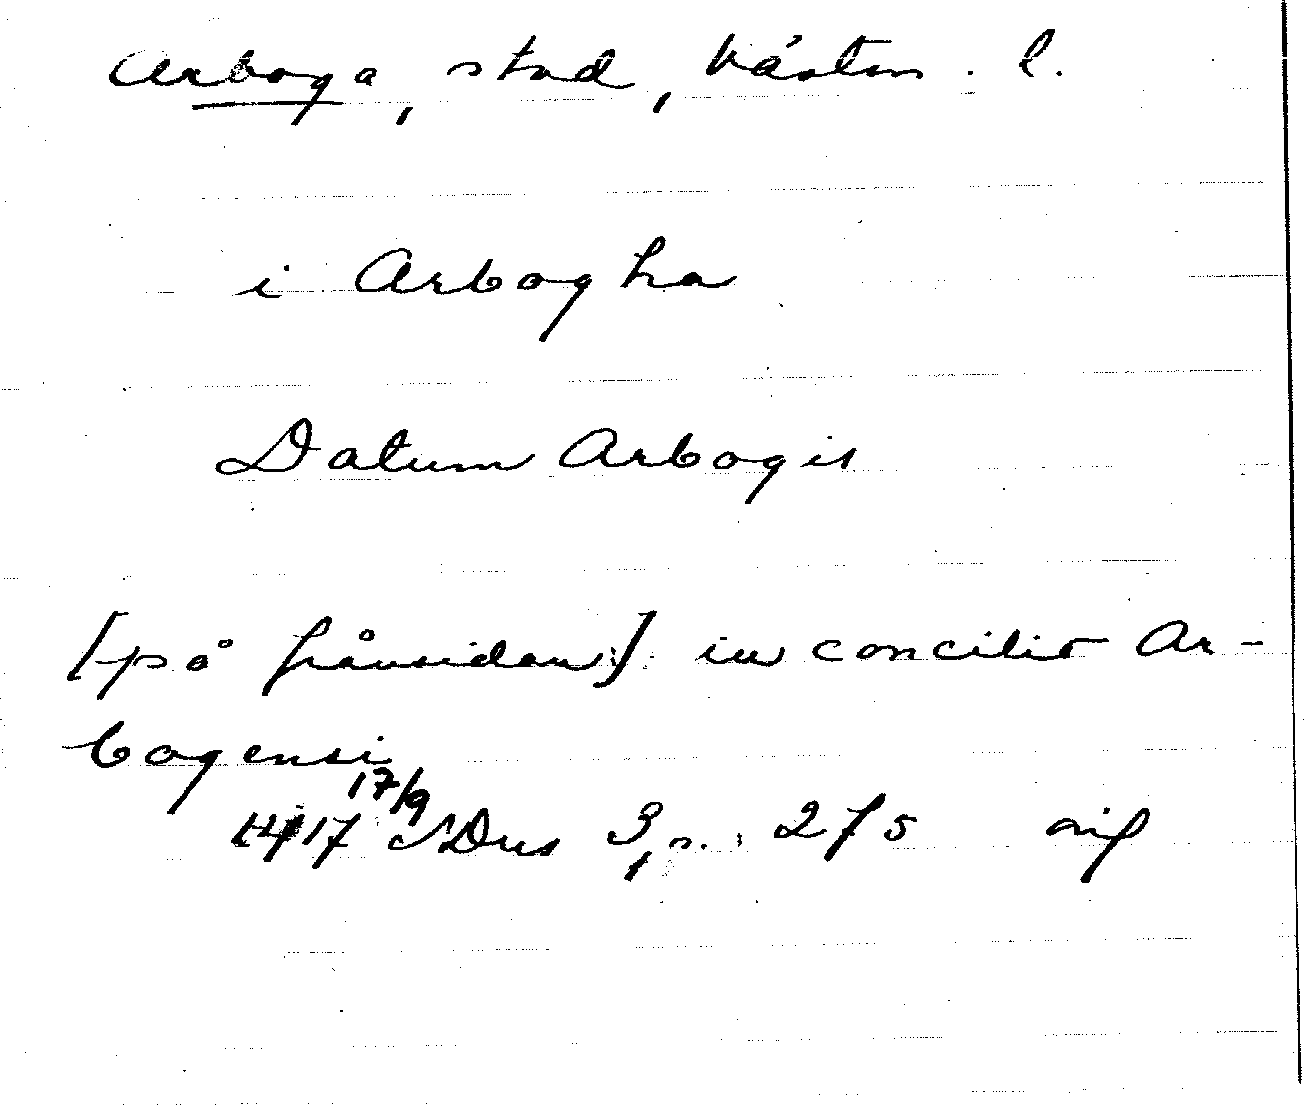 Arboga, stad, Västm. l.
i Arbogha
Datum Arbogis
[på frånsidan] in concilio Ar-
bogensi
1417 17/9 SDns 3, s. 275 oif